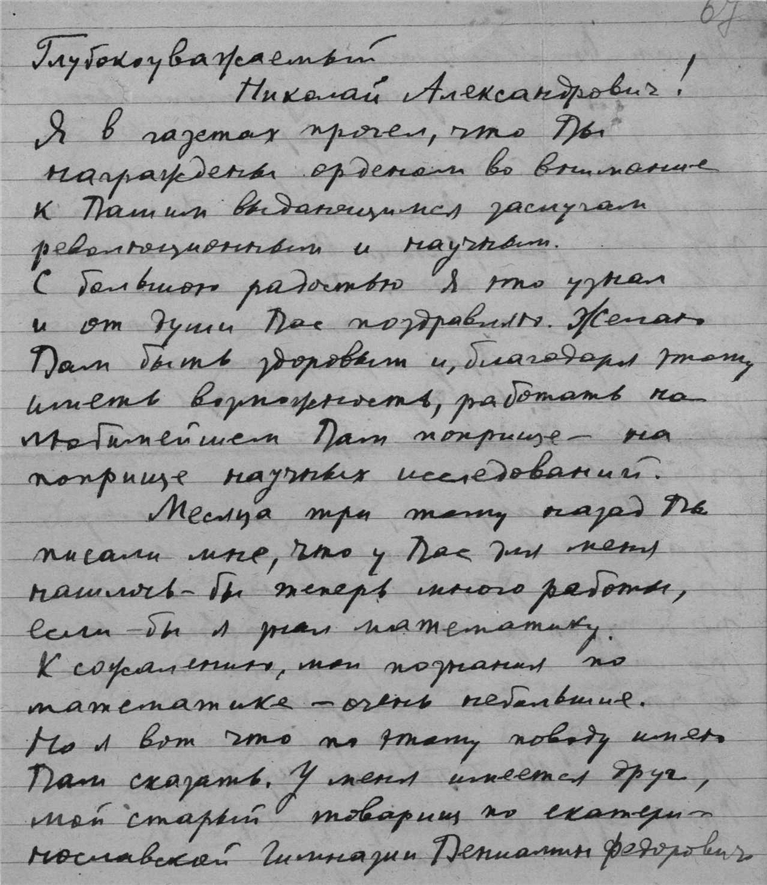 67
Глубокоуважаемый
Николай Александрович!
Я в газетах прочел, что Вы
награждены орденом во внимание
к Вашим выдающимся заслугам
революционным и научным.
С большою радостью я это узнал
и от души Вас поздравляю. Желаю
Вам быть здоровым и, благодаря этому
иметь возможность, работать на
любимейшем Вам поприще – на
поприще научных исследований.
Месяца три тому назад Вы
писали мне, что у Вас для меня
нашлось-бы теперь много работы,
если-бы я знал математику.
К сожалению, мои познания по
математике – очень небольшие.
Но я вот что по этому поводу имею
Вам сказать. У меня имеется друг,
мой старый товарищ по екатери-
нославской гимназии Вениамин Федорович